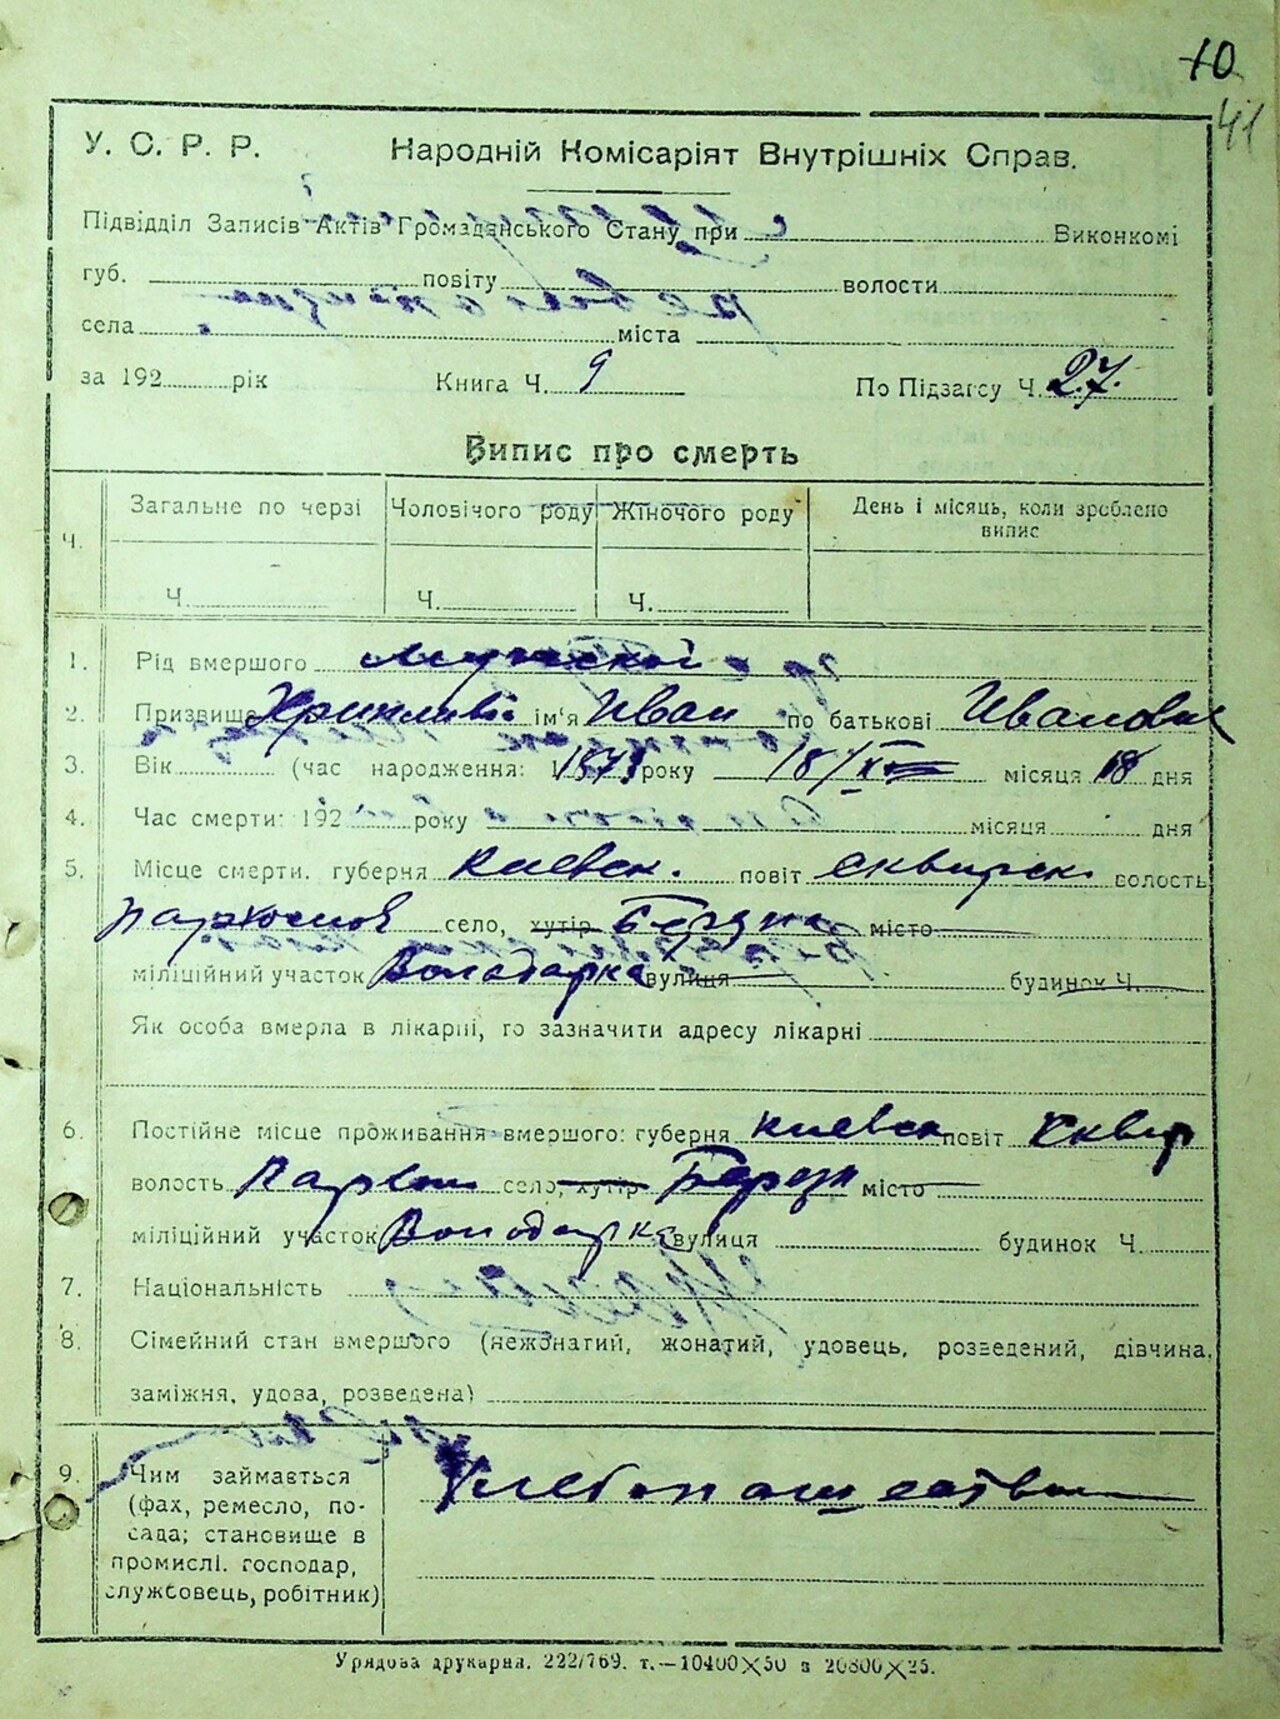 10
41
У. С. Р. Р. Народній Комісаріят Внутрішніх Справ.
Підвідділ Записів Актів Громадянського Стану при Виконкомі
губ. повіту волости
села міста
за 192 рік Книга Ч. 9 По Підзагсу Ч. 27.
Випис про смерть
Ч. Загальне по черзі Чоловічого роду Жіночого роду День і місяць, коли зроблено
випис
Ч. Ч. Ч.
1. Рід вмершого мужской
2. Призвище ім'я Иван по батькові Иванович
3. Вік (час народження: 1873 року 18/ місяця 18 дня
4. Час смерти: 192 року місяця дня
5. Місце смерти. губерня Киевск. повіт сквирск. волость
село, хутір місто
міліційний участок Володарка вулиця будинок Ч.
Як особа вмерла в лікарні, то зазначити адресу лікарні
6. Постійне місце проживання вмершого: губерня Киевск повіт Сквир
волость село, хутір місто
міліційний участок Володарка вулиця будинок Ч.
7. Національність
8. Сімейний стан вмершого (нежонатий, жонатий, удовець, розведений, дівчина,
заміжня, удова, розведена)
9. Чим займається Хлебопашество
(фах, ремесло, по-
сада; становище в
промислі. господар,
службовець, робітник)
Урядова друкарня. 222/769. т.—10400×50 з 20800×25.